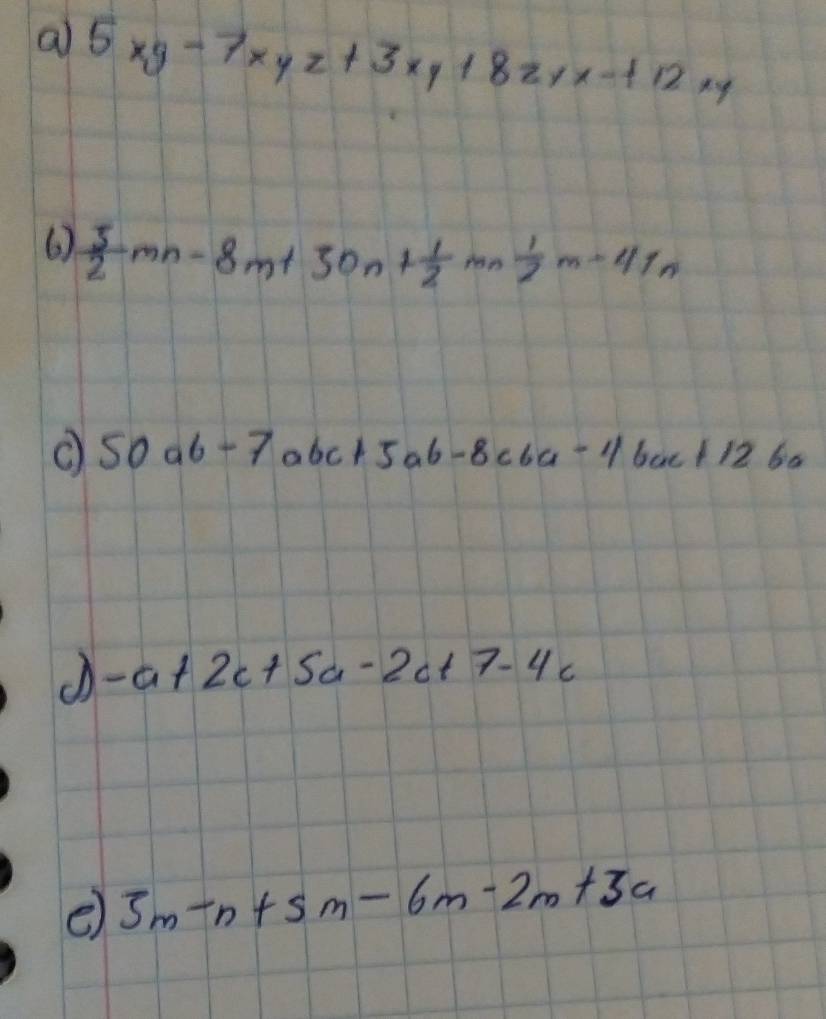 a) 5xy - 7xyz + 3xy + 8zyx + 12xy
b) 3/2 mn - 8m + 30n + 1/2 mn 1/2 m - 41n
c) 50ab - 7abc + 5ab - 8cba - 4bac + 12ba
d) -a + 2c + 5a - 2c + 7 - 4c
e) 3m - n + 5m - 6m - 2m + 3a